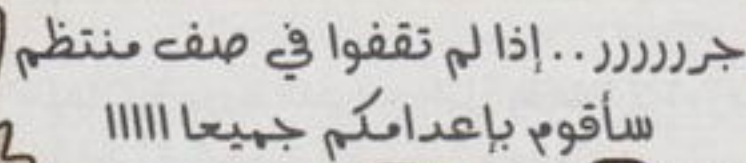 جررررر.. إذا لم تقفوا في صف منتظم
سأقوم بإعدامكم جميعا ااااا